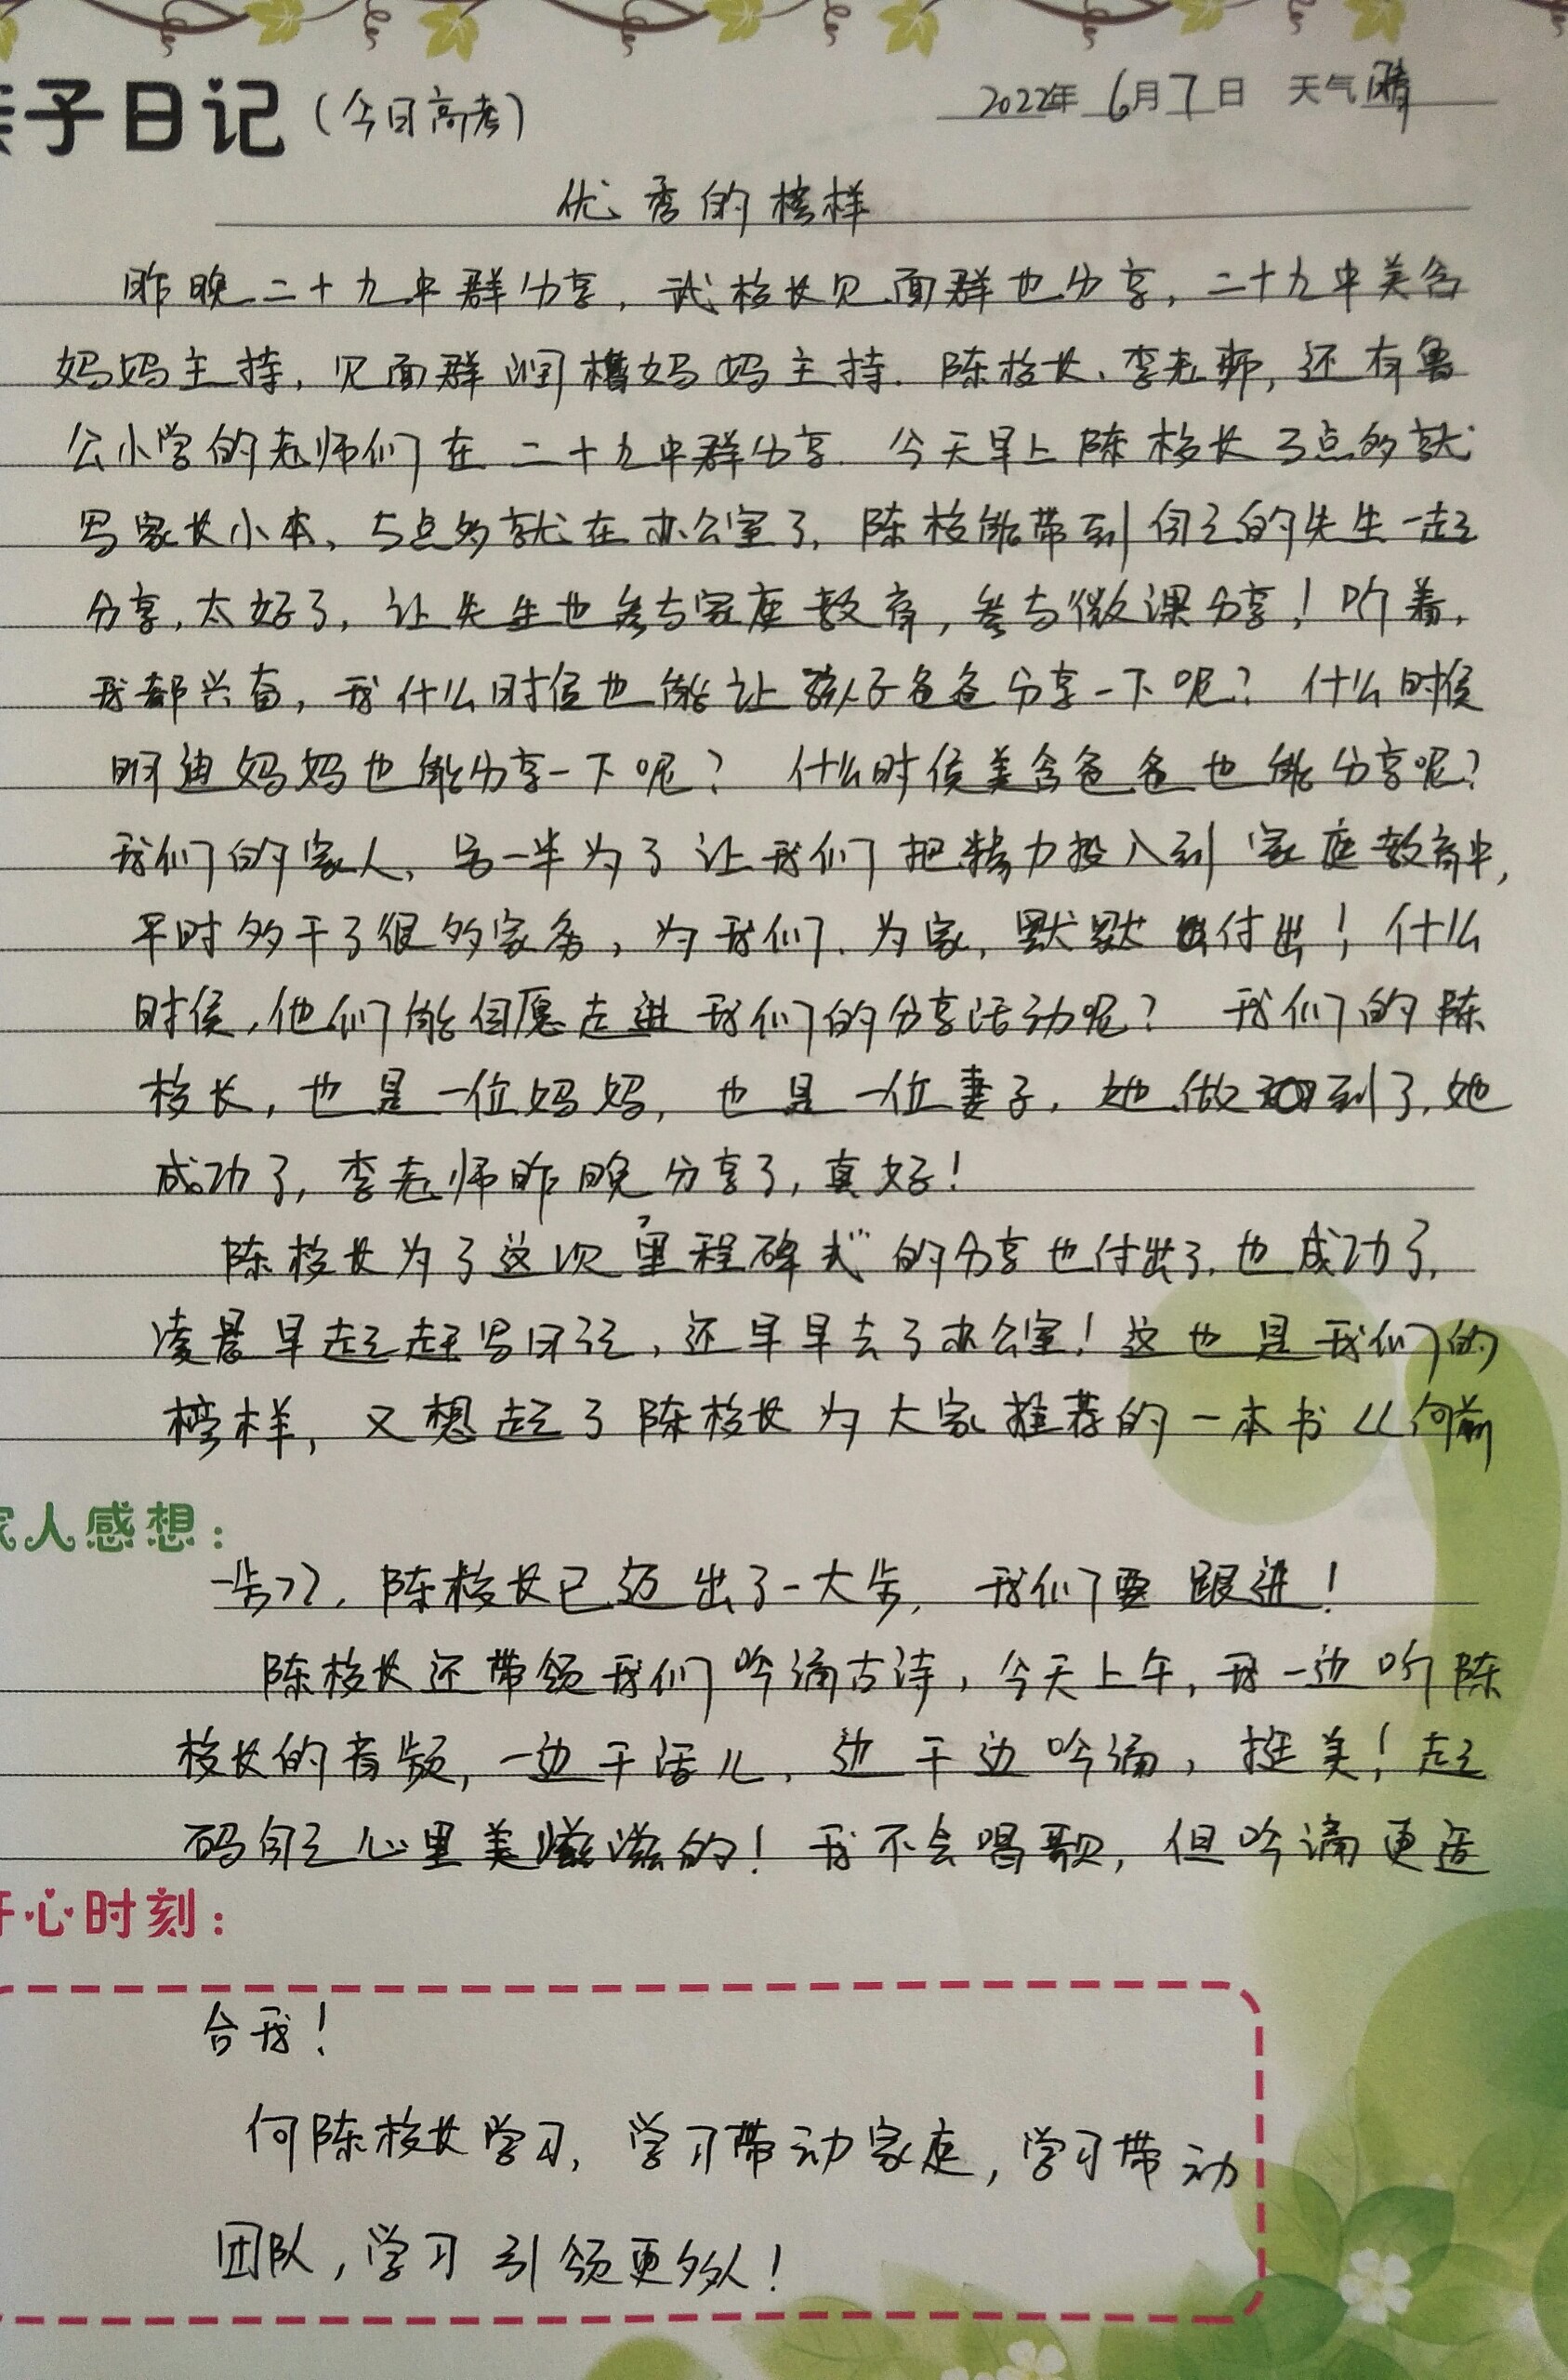 亲子日记(今日高考) 2022年 6月7日 天气晴
优秀的榜样
昨晚二十九中群分享,武校长见面群也分享,二十九中美含
妈妈主持,见面群润楷妈妈主持.陈校长、李老师,还有鲁
公小学的老师们在二十九中群分享.今天早上陈校长3点多就
写家长小本,5点多就在办公室了,陈校能带到自己的先生一起
分享,太好了,让先生也参与家庭教育,参与微课分享!听着,
我都兴奋,我什么时侯也能让孩子爸爸分享一下呢?什么时侯
明迪妈妈也能分享一下呢?什么时侯美含爸爸也能分享呢?
我们的家人,另一半为了让我们把精力投入到家庭教育中,
平时多干了很多家务,为我们、为家,默默付出!什么
时侯,他们能自愿走进我们的分享活动呢?我们的陈
校长,也是一位妈妈,也是一位妻子,她做到了,她
成功了,李老师昨晚分享了,真好!
陈校长为了这次"里程碑式"的分享也付出了,也成功了,
凌晨早起赶写日记,还早早去了办公室!这也是我们的
榜样,又想起了陈校长为大家推荐的一本书《向前
家人感想:
一步》,陈校长已迈出了一大步,我们要跟进!
陈校长还带领我们吟诵古诗,今天上午,我一边听陈
校长的音频,一边干活儿,边干边吟诵,挺美!起
码自己心里美滋滋的!我不会唱歌,但吟诵更适
开心时刻:
合我!
向陈校长学习,学习带动家庭,学习带动
团队,学习引领更多人!